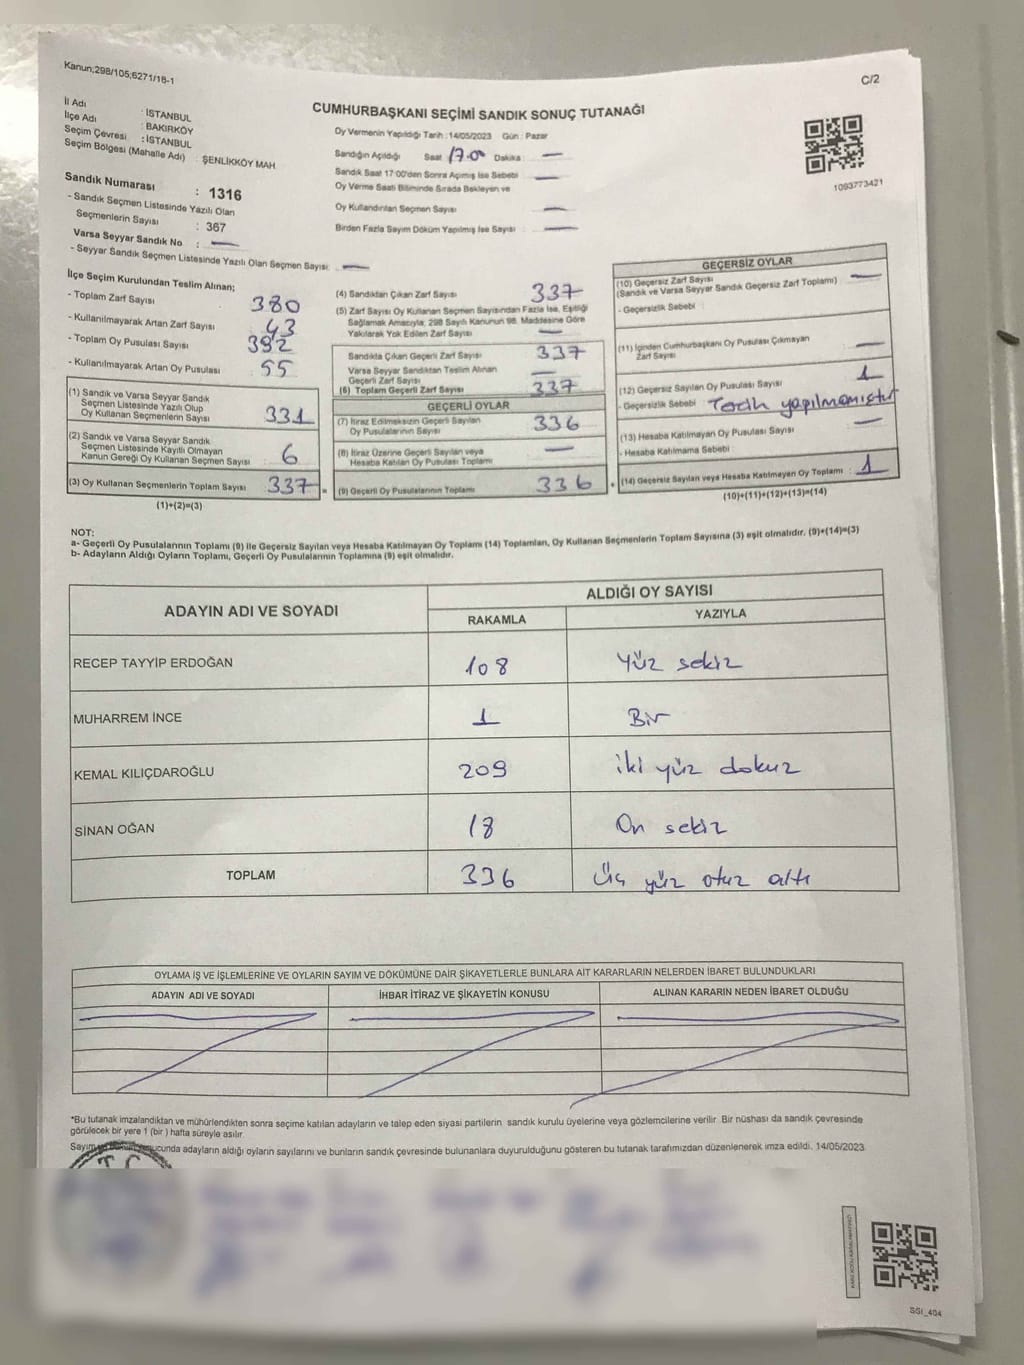 Kanun;298/105;6271/18-1
C/2
CUMHURBAŞKANI SEÇİMİ SANDIK SONUÇ TUTANAĞI
İl Adı : İSTANBUL
İlçe Adı : BAKIRKÖY
Seçim Çevresi : İSTANBUL
Seçim Bölgesi (Mahalle Adı) : ŞENLİKKÖY MAH.
Sandık Numarası : 1316
- Sandık Seçmen Listesinde Yazılı Olan
Seçmenlerin Sayısı : 367
Varsa Seyyar Sandık No : —
- Seyyar Sandık Seçmen Listesinde Yazılı Olan Seçmen Sayısı: —
Oy Vermenin Yapıldığı Tarih :14/05/2023 Gün : Pazar
Sandığın Açıldığı Saat 17.00 Dakika : —
Sandık Saat 17:00'den Sonra Açımış İse Sebebi —
Oy Verme Saati Bitiminde Sırada Bekleyen ve
Oy Kullandırılan Seçmen Sayısı —
Birden Fazla Sayım Döküm Yapılmış İse Sayısı : —
1093773421
İlçe Seçim Kurulundan Teslim Alınan;
- Toplam Zarf Sayısı 380
- Kullanılmayarak Artan Zarf Sayısı 43
- Toplam Oy Pusulası Sayısı 392
- Kullanılmayarak Artan Oy Pusulası 55
(1) Sandık ve Varsa Seyyar Sandık
Seçmen Listesinde Yazılı Olup
Oy Kullanan Seçmenlerin Sayısı 331
(2) Sandık ve Varsa Seyyar Sandık
Seçmen Listesinde Kayıtlı Olmayan
Kanun Gereği Oy Kullanan Seçmen Sayısı 6
(3) Oy Kullanan Seçmenlerin Toplam Sayısı 337 =
(1)+(2)=(3)
(4) Sandıktan Çıkan Zarf Sayısı 337
(5) Zarf Sayısı Oy Kullanan Seçmen Sayısından Fazla İse, Eşitliği
Sağlamak Amacıyla; 298 Sayılı Kanunun 98. Maddesine Göre
Yakılarak Yok Edilen Zarf Sayısı —
Sandıkta Çıkan Geçerli Zarf Sayısı 337
Varsa Seyyar Sandıktan Teslim Alınan
Geçerli Zarf Sayısı —
(6) Toplam Geçerli Zarf Sayısı 337
GEÇERLİ OYLAR
(7) İtiraz Edilmeksizin Geçerli Sayılan
Oy Pusulalarının Sayısı 336
(8) İtiraz Üzerine Geçerli Sayılan veya
Hesaba Katılan Oy Pusulası Toplamı —
(9) Geçerli Oy Pusulalarının Toplamı 336 +
GEÇERSİZ OYLAR
(10) Geçersiz Zarf Sayısı —
(Sandık ve Varsa Seyyar Sandık Geçersiz Zarf Toplamı)
- Geçersizlik Sebebi :
(11) İçinden Cumhurbaşkanı Oy Pusulası Çıkmayan
Zarf Sayısı —
(12) Geçersiz Sayılan Oy Pusulası Sayısı 1
- Geçersizlik Sebebi Tercih yapılmamıştır
(13) Hesaba Katılmayan Oy Pusulası Sayısı —
- Hesaba Katılmama Sebebi
(14) Geçersiz Sayılan veya Hesaba Katılmayan Oy Toplamı : 1
(10)+(11)+(12)+(13)=(14)
NOT:
a- Geçerli Oy Pusulalarının Toplamı (9) ile Geçersiz Sayılan veya Hesaba Katılmayan Oy Toplamı (14) Toplamları, Oy Kullanan Seçmenlerin Toplam Sayısına (3) eşit olmalıdır. (9)+(14)=(3)
b- Adayların Aldığı Oyların Toplamı, Geçerli Oy Pusulalarının Toplamına (9) eşit olmalıdır.
ADAYIN ADI VE SOYADI
ALDIĞI OY SAYISI
RAKAMLA YAZIYLA
RECEP TAYYİP ERDOĞAN 108 Yüz sekiz
MUHARREM İNCE 1 Bir
KEMAL KILIÇDAROĞLU 209 iki yüz dokuz
SİNAN OĞAN 18 On sekiz
TOPLAM 336 Üç yüz otuz altı
OYLAMA İŞ VE İŞLEMLERİNE VE OYLARIN SAYIM VE DÖKÜMÜNE DAİR ŞİKAYETLERLE BUNLARA AİT KARARLARIN NELERDEN İBARET BULUNDUKLARI
ADAYIN ADI VE SOYADI İHBAR İTİRAZ VE ŞİKAYETİN KONUSU ALINAN KARARIN NEDEN İBARET OLDUĞU
*Bu tutanak imzalandıktan ve mühürlendikten sonra seçime katılan adayların ve talep eden siyasi partilerin, sandık kurulu üyelerine veya gözlemcilerine verilir. Bir nüshası da sandık çevresinde
görülecek bir yere 1 (bir ) hafta süreyle asılır.
adayların aldığı oyların sayılarını ve bunların sandık çevresinde bulunanlara duyurulduğunu gösteren bu tutanak tarafımızdan düzenlenerek imza edildi. 14/05/2023
T.C.
SSI_404